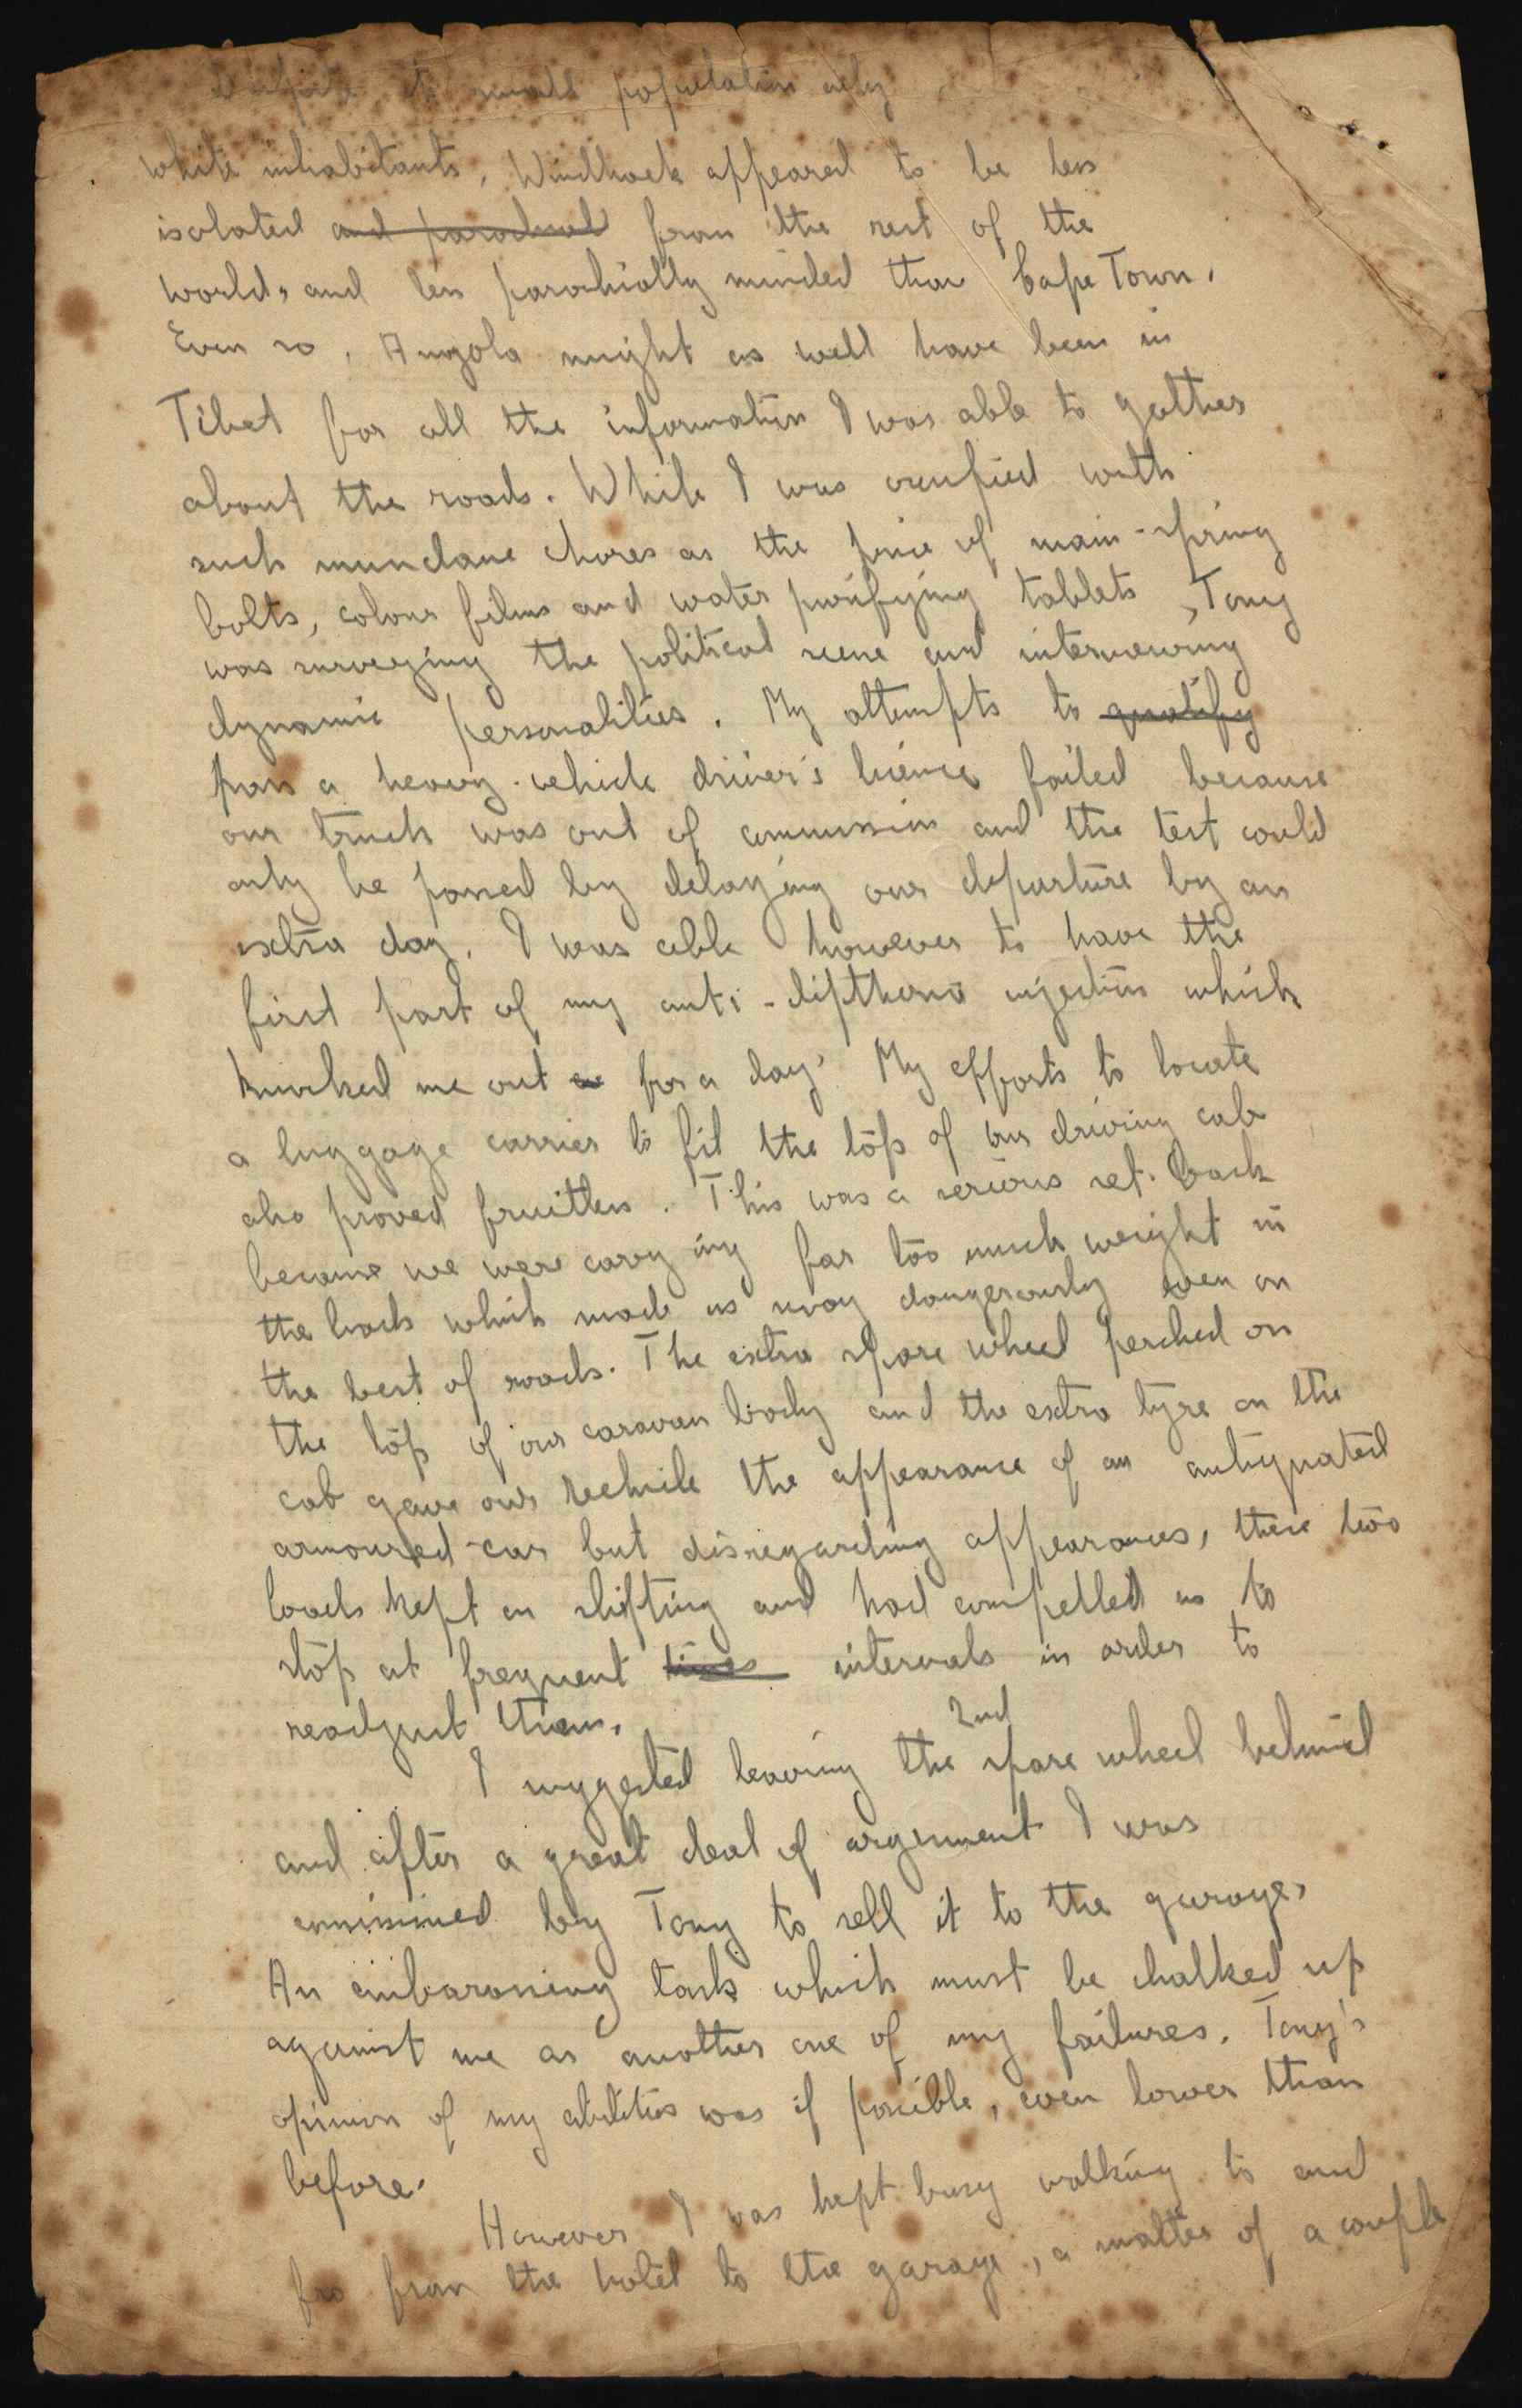 despite its small population only
white inhabitants, Windhoek appeared to be less
isolated and parochial from the rest of the
world, and less parochially minded than Cape Town.
Even so, Angola might as well have been in
Tibet for all the information I was able to gather
about the roads. While I was occupied with
such mundane chores as the price of main-spring
bolts, colour films and water purifying tablets, Tony
was surveying the political scene and interviewing
dynamic personalities. My attempts to qualify
pass a heavy-vehicle driver's licence failed because
our truck was out of commission and the test could
only be passed by delaying our departure by an
extra day. I was able however to have the
first part of my anti-diptheria injection which
knocked me out for a day. My efforts to locate
a luggage carrier to fit the top of our driving cab
also proved fruitless. This was a serious set-back
because we were carrying far too much weight in
the back which made us sway dangerously even on
the best of roads. The extra spare wheel perched on
the top of our caravan body and the extra tyre on the
cab gave our vechile the appearance of an antiquated
armoured-car but disregarding appearances, these two
loads kept on shifting and had compelled us to
stop at frequent times intervals in order to
readjust them.
I suggested leaving the 2nd spare wheel behind
and after a great deal of argument I was
commissioned by Tony to sell it to the garage.
An embarassing task which must be chalked up
against me as another one of my failures. Tony's
opinion of my abilities was if possible, even lower than
before.
However I was kept busy walking to and
fro from the hotel to the garage, a matter of a couple